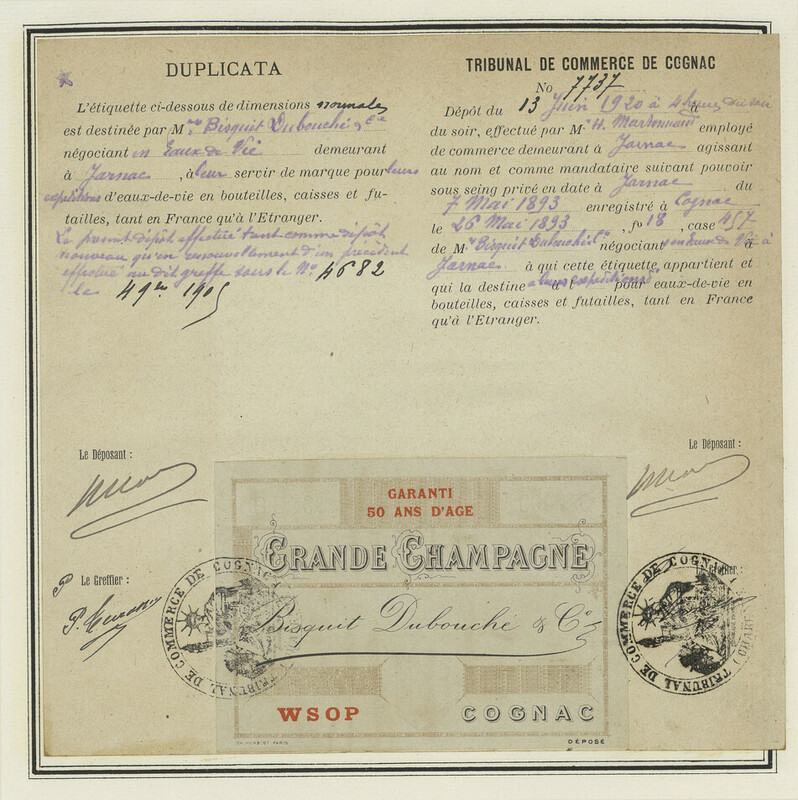 DUPLICATA
L'étiquette ci-dessous de dimensions normales
est destinée par M.rs Bisquit Dubouché & Cie
négociant en Eaux de Vie demeurant
à Jarnac, à leur servir de marque pour leurs
expéditions d'eaux-de-vie en bouteilles, caisses et fu-
tailles, tant en France qu'à l'Etranger.
Le présent dépôt effectué tant comme dépôt
nouveau qu'en renouvellement d'un précédent
effectué au dit greffe sous le No 4682
le 4 9bre 1905
TRIBUNAL DE COMMERCE DE COGNAC
No 7737
Dépôt du 13 Juin 1920 à 4 heures du soir
du soir, effectué par M. H. employé
de commerce demeurant à Jarnac agissant
au nom et comme mandataire suivant pouvoir
sous seing privé en date à Jarnac du
7 Mai 1893 enregistré à Cognac
le 26 Mai 1893, fo 18, case 457
de M.rs Bisquit Dubouché & Co négociants en Eaux de Vie à
Jarnac à qui cette étiquette appartient et
qui la destine à leurs expéditions d'eaux-de-vie en
bouteilles, caisses et futailles, tant en France
qu'à l'Etranger.
Le Déposant :
Le Déposant :
P Le Greffier :
Le Greffier :
TRIBUNAL DE COMMERCE DE COGNAC
TRIBUNAL DE COMMERCE DE COGNAC
GARANTI
50 ANS D'AGE
GRANDE CHAMPAGNE
Bisquit Dubouché & Co
WSOP COGNAC
DÉPOSÉ